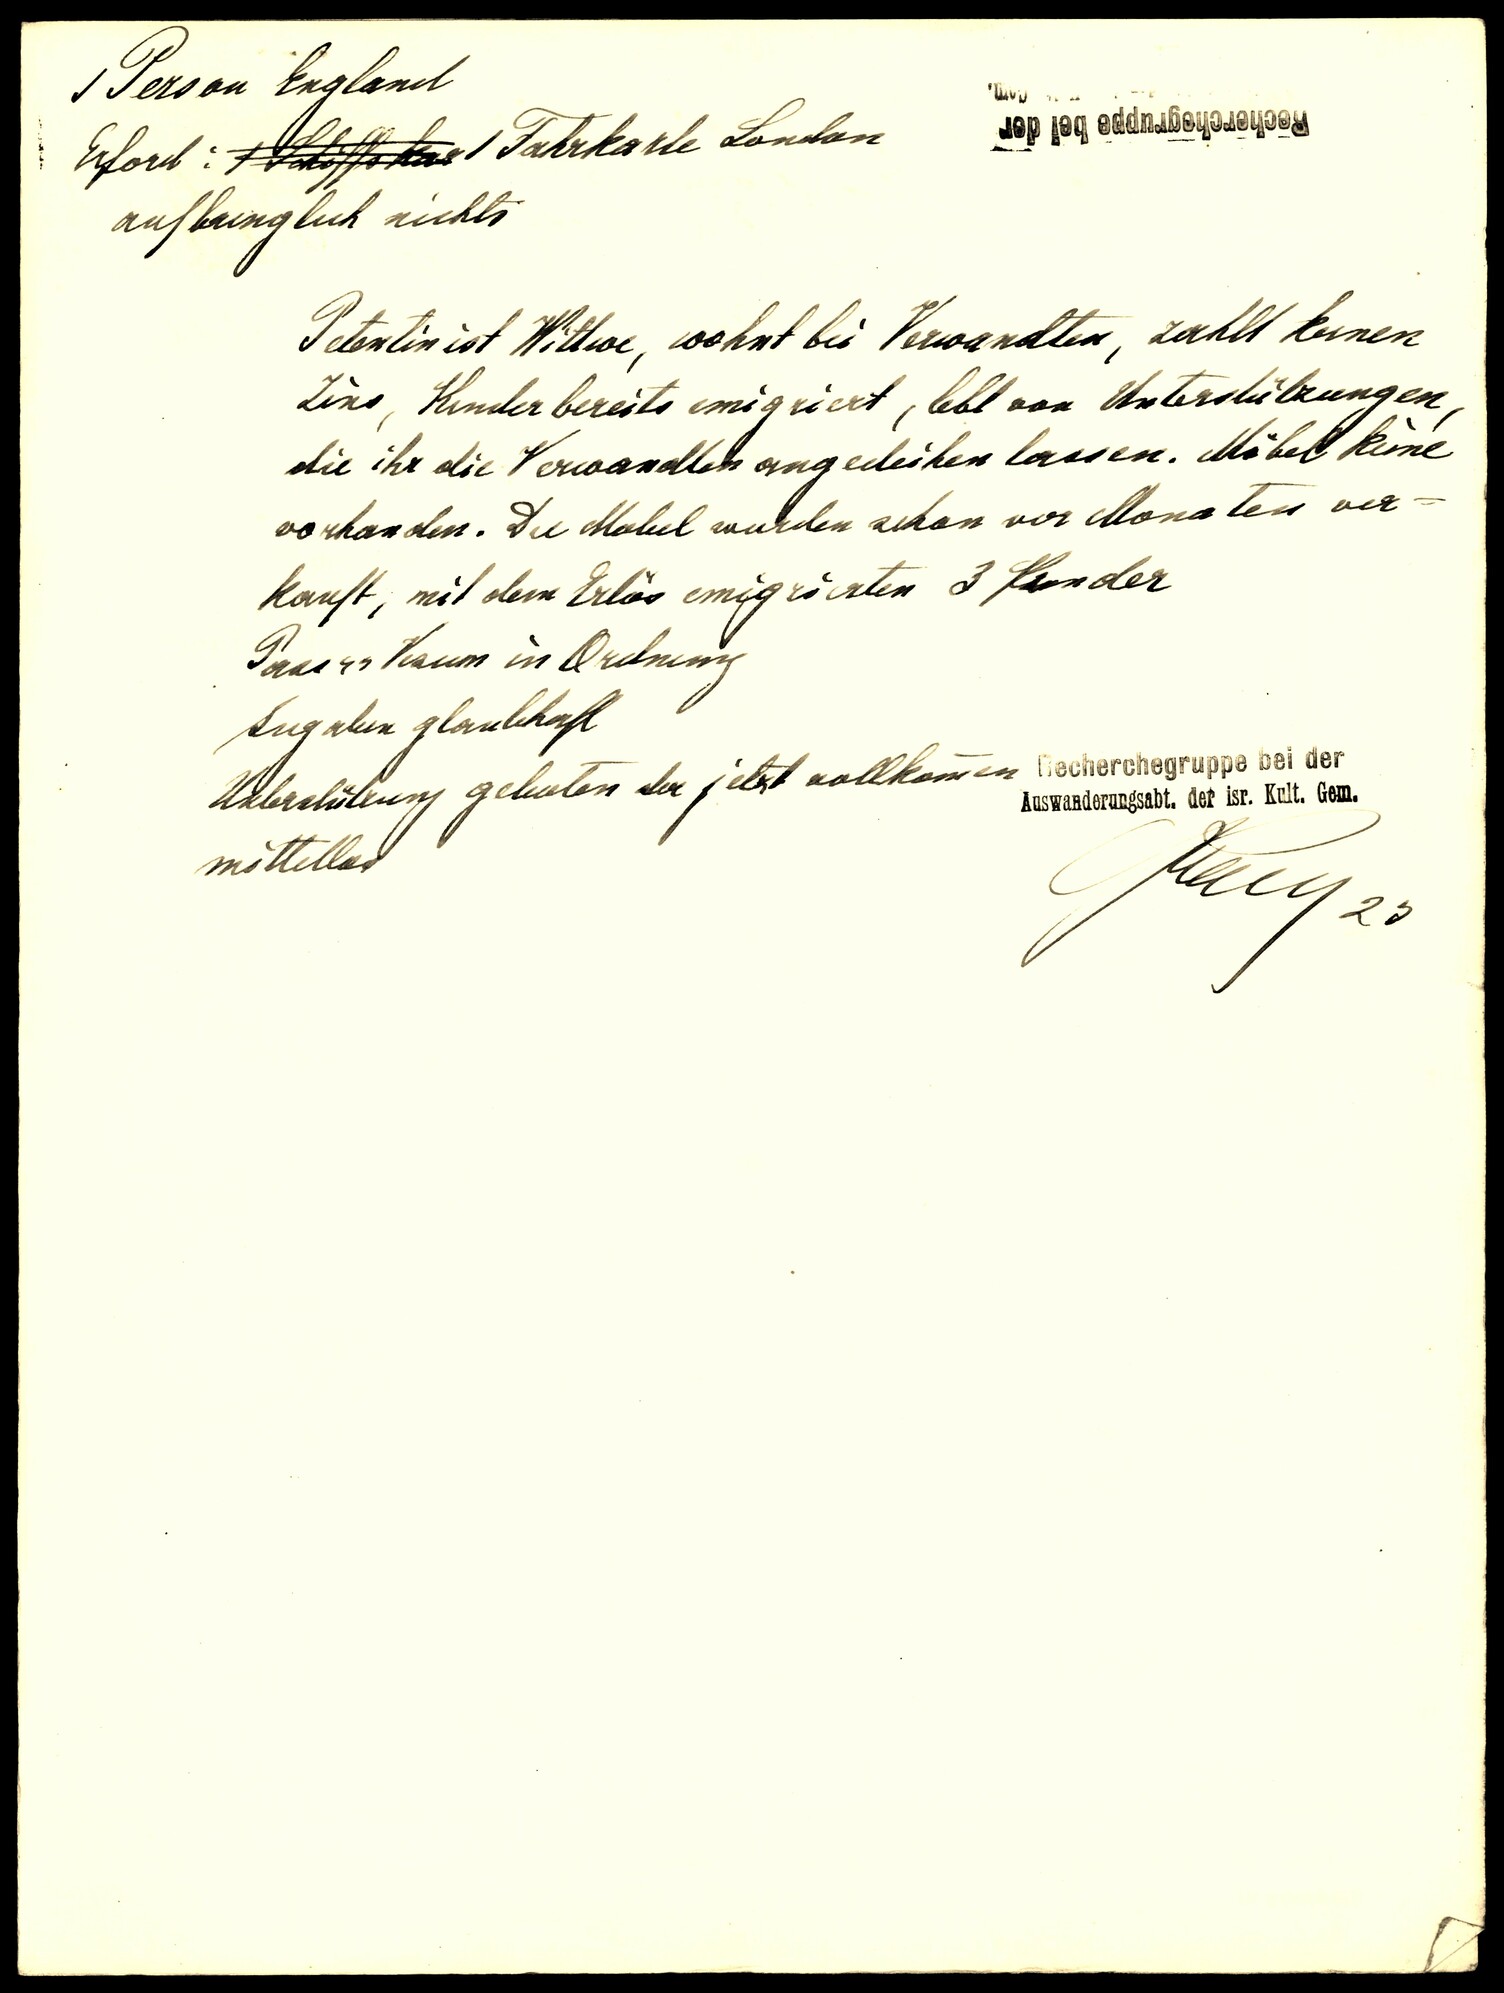 1 Person England
Erford: 1 Schiffskar 1 Fahrkarte London
aufbringlich nichts
Recherchegruppe bei der
Gem.
Petentin ist Wittwe, wohnt bei Verwandten, zahlt keinen
Zins, Kinder bereits emigriert, lebt von Unterstützungen,
die ihr die Verwandten angedeihen lassen. Möbel keine
vorhanden. Die Möbel wurden schon vor Monaten ver=
kauft, mit dem Erlös emigrierten 3 Kinder
Pass Visum in Ordnung
Angaben glaubhaft
Unterstützung geboten da jetzt vollkom̄en
mittellos
Recherchegruppe bei der
Auswanderungsabt. der isr. Kult. Gem.
23